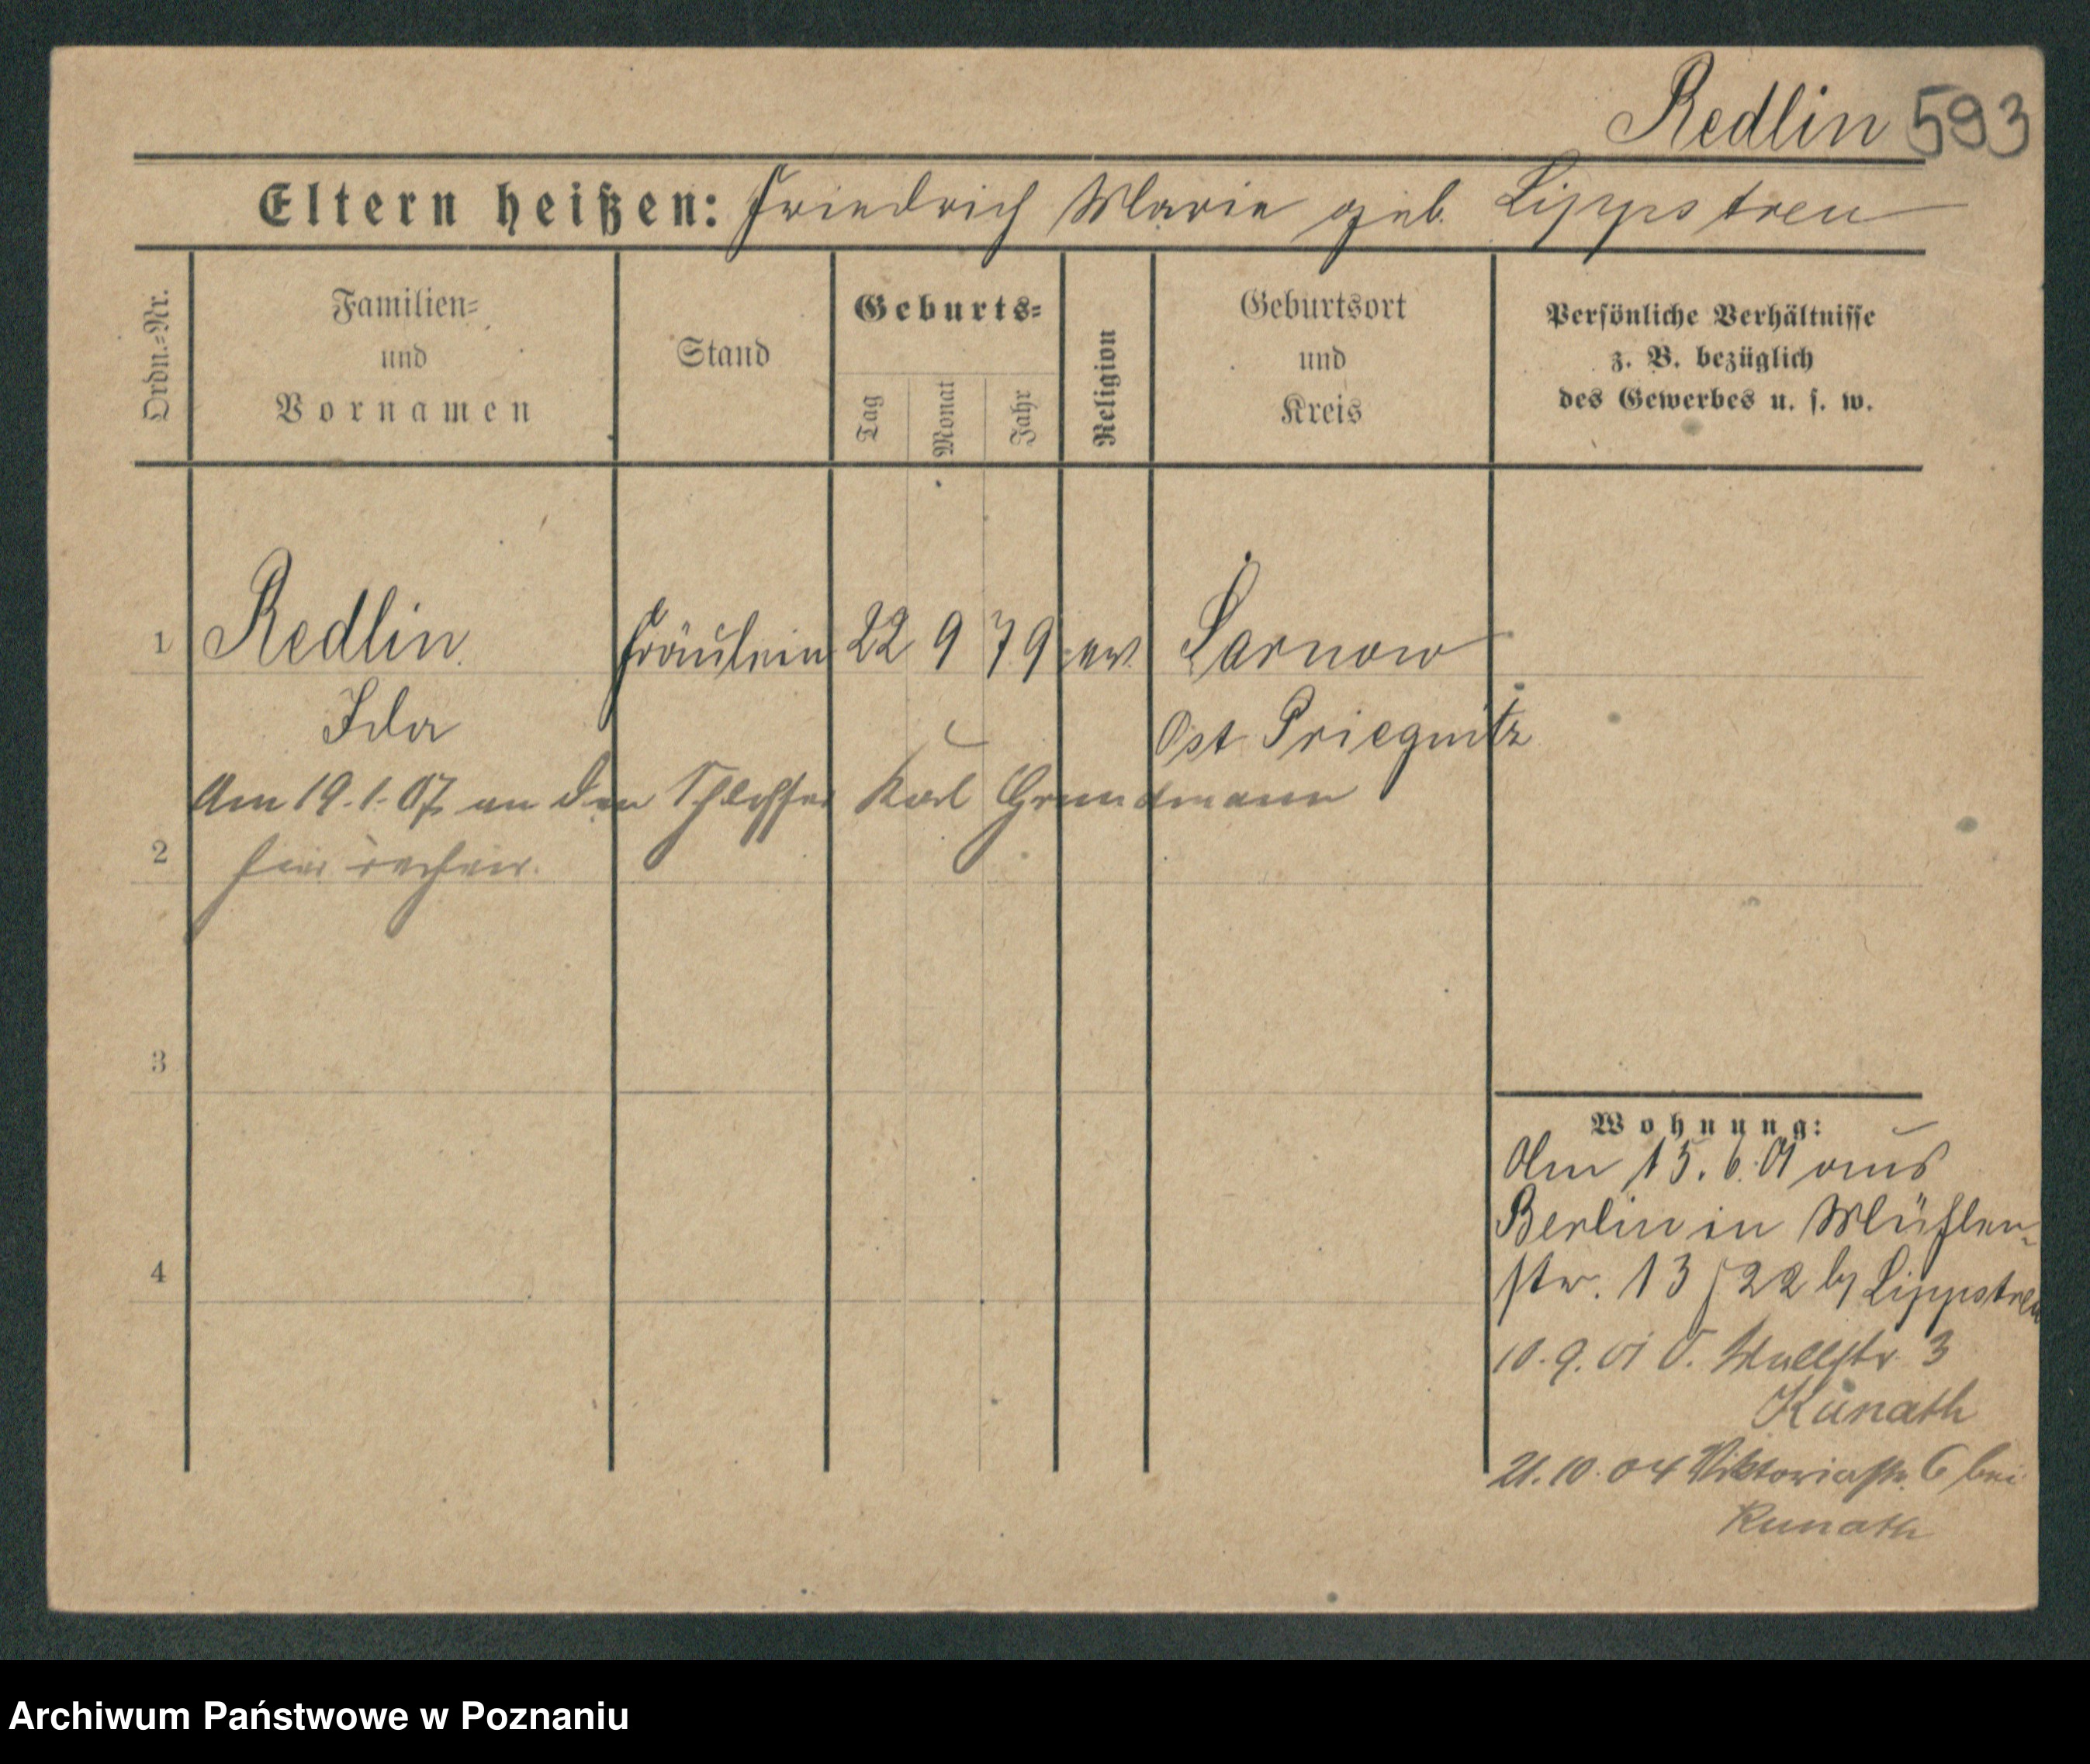 Redlin 593
Eltern heißen: Friedrich Marie geb. Lippstreu
Ordn.-Nr.
Familien-
und
Vornamen
Stand
Geburts-
Tag
Monat
Jahr
Religion
Geburtsort
und
Kreis
Persönliche Verhältnisse
z. B. bezüglich
des Gewerbes u. s. w.
1 Redlin Fräulein 22 9 79 ev. Sarnow
Ida Ost Priegnitz
Am 19.1.07 an den Schlosser Karl Grundmann
2 hier
3
4
Wohnung:
Am 15.6.01 aus
Berlin in Mühlen-
str. 13 /22 by Lippstreu
10.9.01 O. Wallstr 3
Kunath
21.10.04 Viktoriastr. 6 bei
Kunath
Archiwum Państwowe w Poznaniu